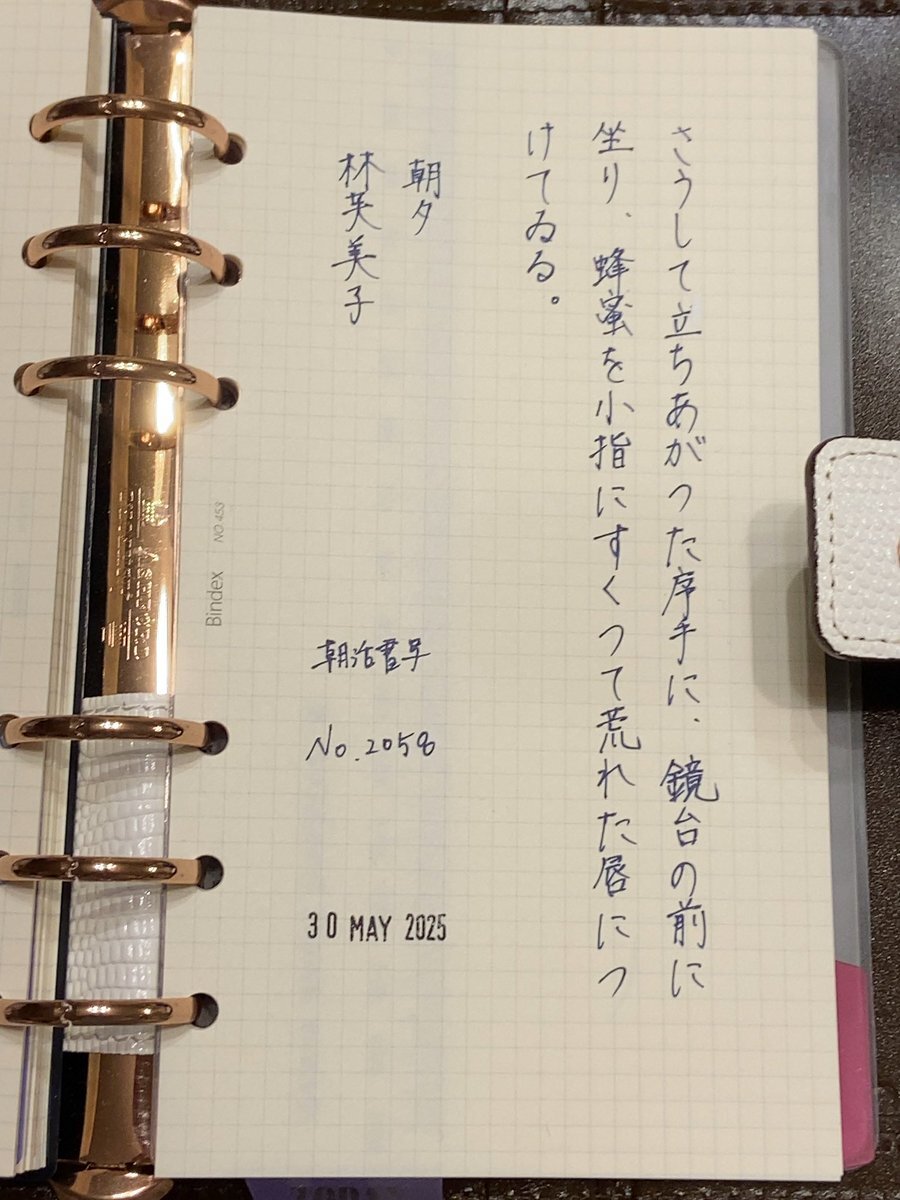 さうして立ちあがつた序手に、鏡台の前に
坐り、蜂蜜を小指にすくつて荒れた唇につ
けてゐる。
朝夕
林芙美子
朝活書写
No.2058
30 MAY 2025
Bindex NO.453